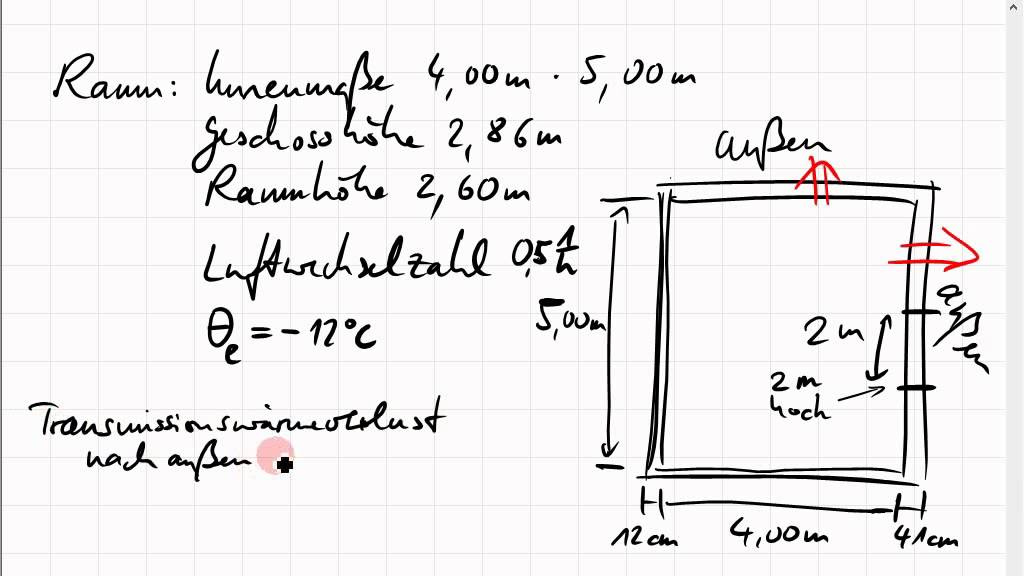 Raum: Innenmaße 4,00m · 5,00m
Geschosshöhe 2,86m
Raumhöhe 2,60m
Luftwechselzahl 0,5 1/h
θe = -12°C
Transmissionswärmeverlust
nach außen
außen
5,00m
2 m
2 m
hoch
außen
12cm
4,00m
41cm